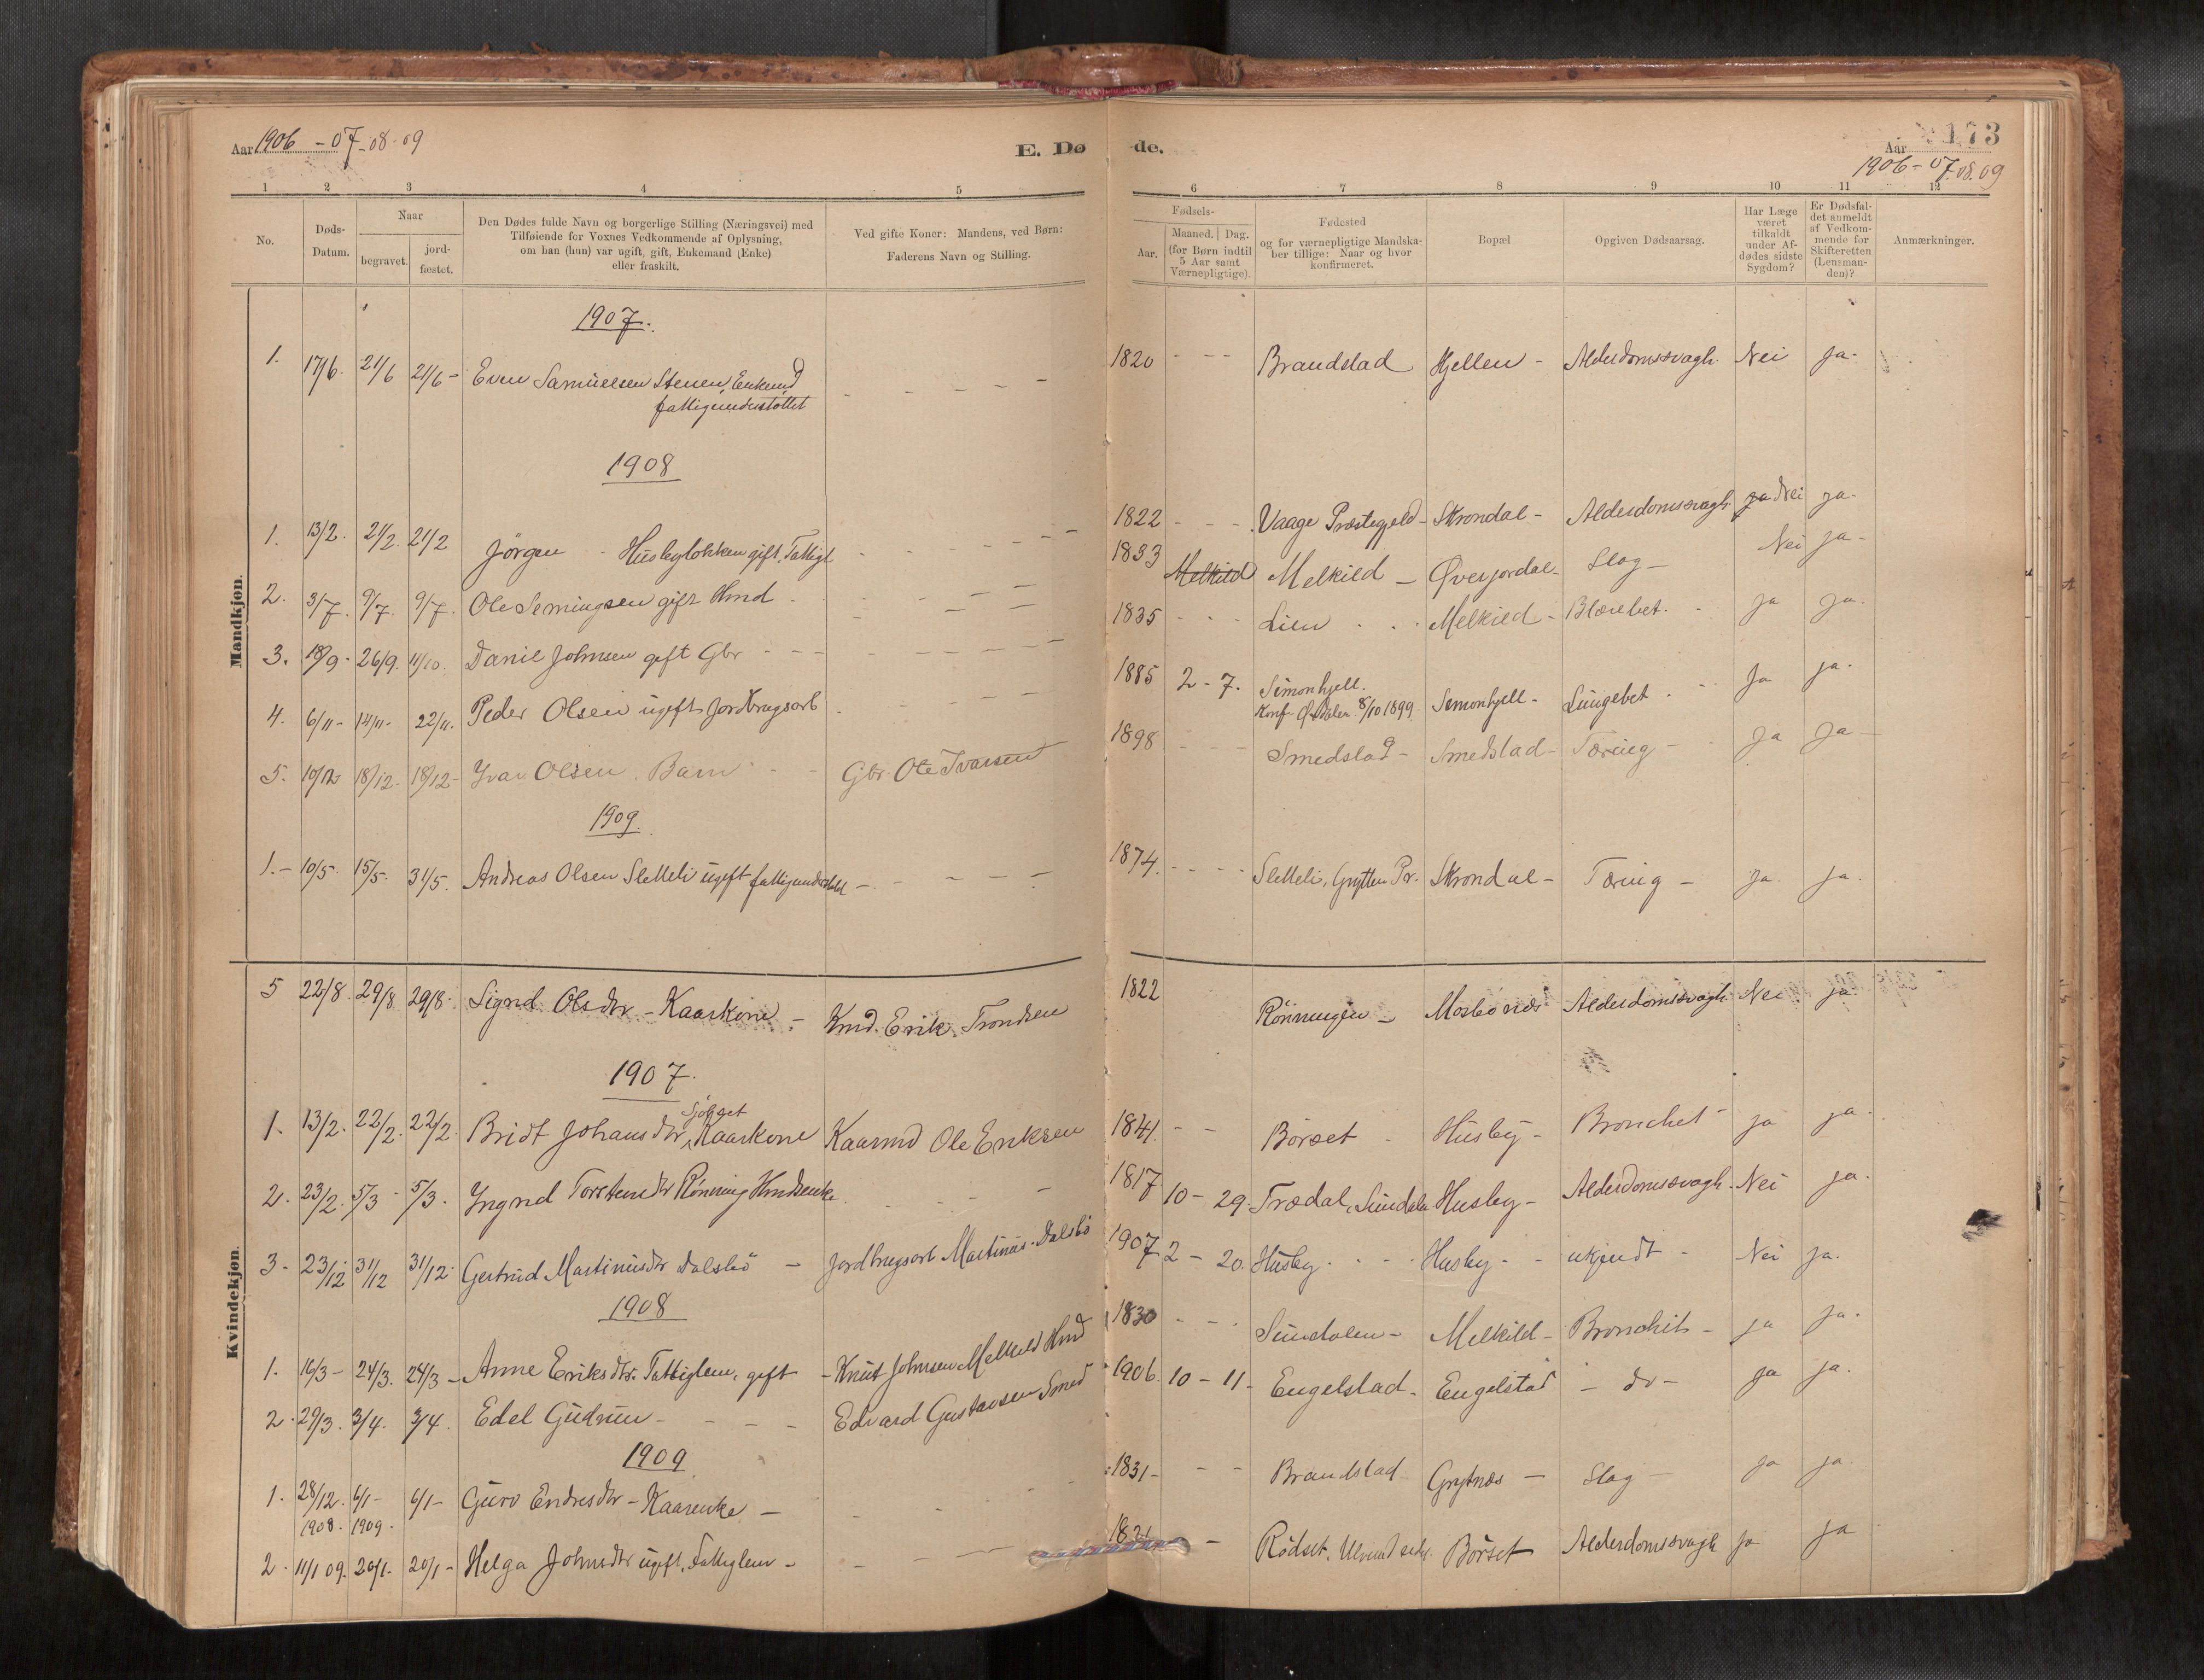 Aar 1906 - 07 - 08 - 09
E. Dø
1 2 3 4 5
No.
Døds-
Datum.
Naar
begravet.
jord-
fæstet.
Den Dødes fulde Navn og borgerlige Stilling (Næringsvei) med
Tilføiende for Voxnes Vedkommende af Oplysning,
om han (hun) var ugift, gift, Enkemand (Enke)
eller fraskilt.
Ved gifte Koner: Mandens, ved Børn:
Faderens Navn og Stilling.
Mandkjøn.
1907.
1. 17/6. 21/6 21/6 - Even Samuelsen Stenen, Enkemd
fattigunderstøttet
1908
1. 13/2. 21/2. 21/2 Jörgen - Husbyløkken gift, Fattigl
2. 3/7. 9/7. 9/7. Ole Semingsen gift Hmd
3. 18/9. 26/9. 11/10. Daniel Johnsen gift Gbr
4. 6/11 - 14/11 - 22/11. Peder Olsen ugift Jordbrugsarb
5. 10/12 18/12. 18/12 - Ivar Olsen. Barn - Gbr Ole Ivarsen
1909.
1. - 10/5. 15/5. 31/5. Andreas Olsen Sletteli ugift fattigunderstøttet
Kvindekjøn.
5 22/8. 29/8 29/8. Sigrid Olsdtr - Kaarkone - Kmd. Erik Trondsen
1907.
Sjølset
1. 13/2. 22/2. 22/2. Bridt Johansdtr, Kaarkone Kaarmd Ole Eriksen
2. 23/2. 5/3 5/3. Ingrid Torstensdtr Rönning Hmdsenke
3 - 23/12 31/12 31/12. Gertrud Martinusdtr Dalsbö - Jordbrugsarb Martinus Dalsbö
1908
1. 16/3 - 24/3. 24/3 - Anne Eriksdtr. Fattiglem, gift - Knut Johnsen Melkild Hmd
2. 29/3. 3/4. 3/4. Edel Gudrun - Edvard Gustavsen Smed
1909
1. 28/12. 6/1 - 6/1 - Guro Endresdtr - Kaarenke -
1908. 1909.
2. 11/1 09. 20/1. 20/1 - Helga Johnsdtr ugift, Fattiglem -
-de.
173
Aar
1906 - 07. 08. 09
6 7 8 9 10 11 12
Fødsels-
Aar.
Maaned. Dag.
(for Børn indtil
5 Aar samt
Værnepligtige).
Fødested
og for værnepligtige Mandska-
ber tillige: Naar og hvor
konfirmeret.
Bopæl
Opgiven Dødsaarsag.
Har Læge
været
tilkaldt
under Af-
dødes sidste
Sygdom?
Er Dødsfal-
det anmeldt
af Vedkom-
mende for
Skifteretten
(Lensman-
den)?
Anmærkninger.
1820 - - - Brandstad Hjellen - Alderdomssvagh. Nei ja.
1822 - - - Vaage Præstegjeld - Skrondal - Alderdomssvagh ja Nei ja.
1833 Melkild Melkild - Øverjordal - Slag - Nei ja -
1835 - - - Lien Melkild - Blærebet. ja ja.
1885 2 - 7. Simonhjell.
Konf. Øxdalen 8/10 1899 Simonhjell - Lungebet Ja ja.
1898 Smedstad - Smedstad - Tæring - Ja Ja
1874. - - - Sletteli, Grytten Pr. Skrondal - Tæring - ja ja.
1822 Rönningen - Mosbønæs Alderdomssvagh Nei ja.
1841. - - Börset - Husby - Bronchet ja ja.
1817 10 - 29. Trædal, Sundalen Husby - Alderdomssvagh. Nei ja.
1907. 2 - 20. Husby. Husby - ukjendt - Nei ja.
1830 - - Sundalen - Melkild - Bronchit - ja ja.
1906. 10 - 11 - Engelstad - Engelstad - do - ja ja.
1831 - - - Brandstad Grytnæs - Slag - ja ja
1821 - Rödset, Börset Alderdomssvagh Ja ja